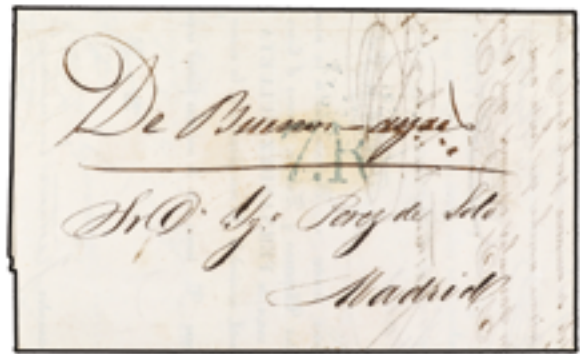 De Buenos-ayres
7.R
Sr. D.n Yg.o Perez de Soto
Madrid